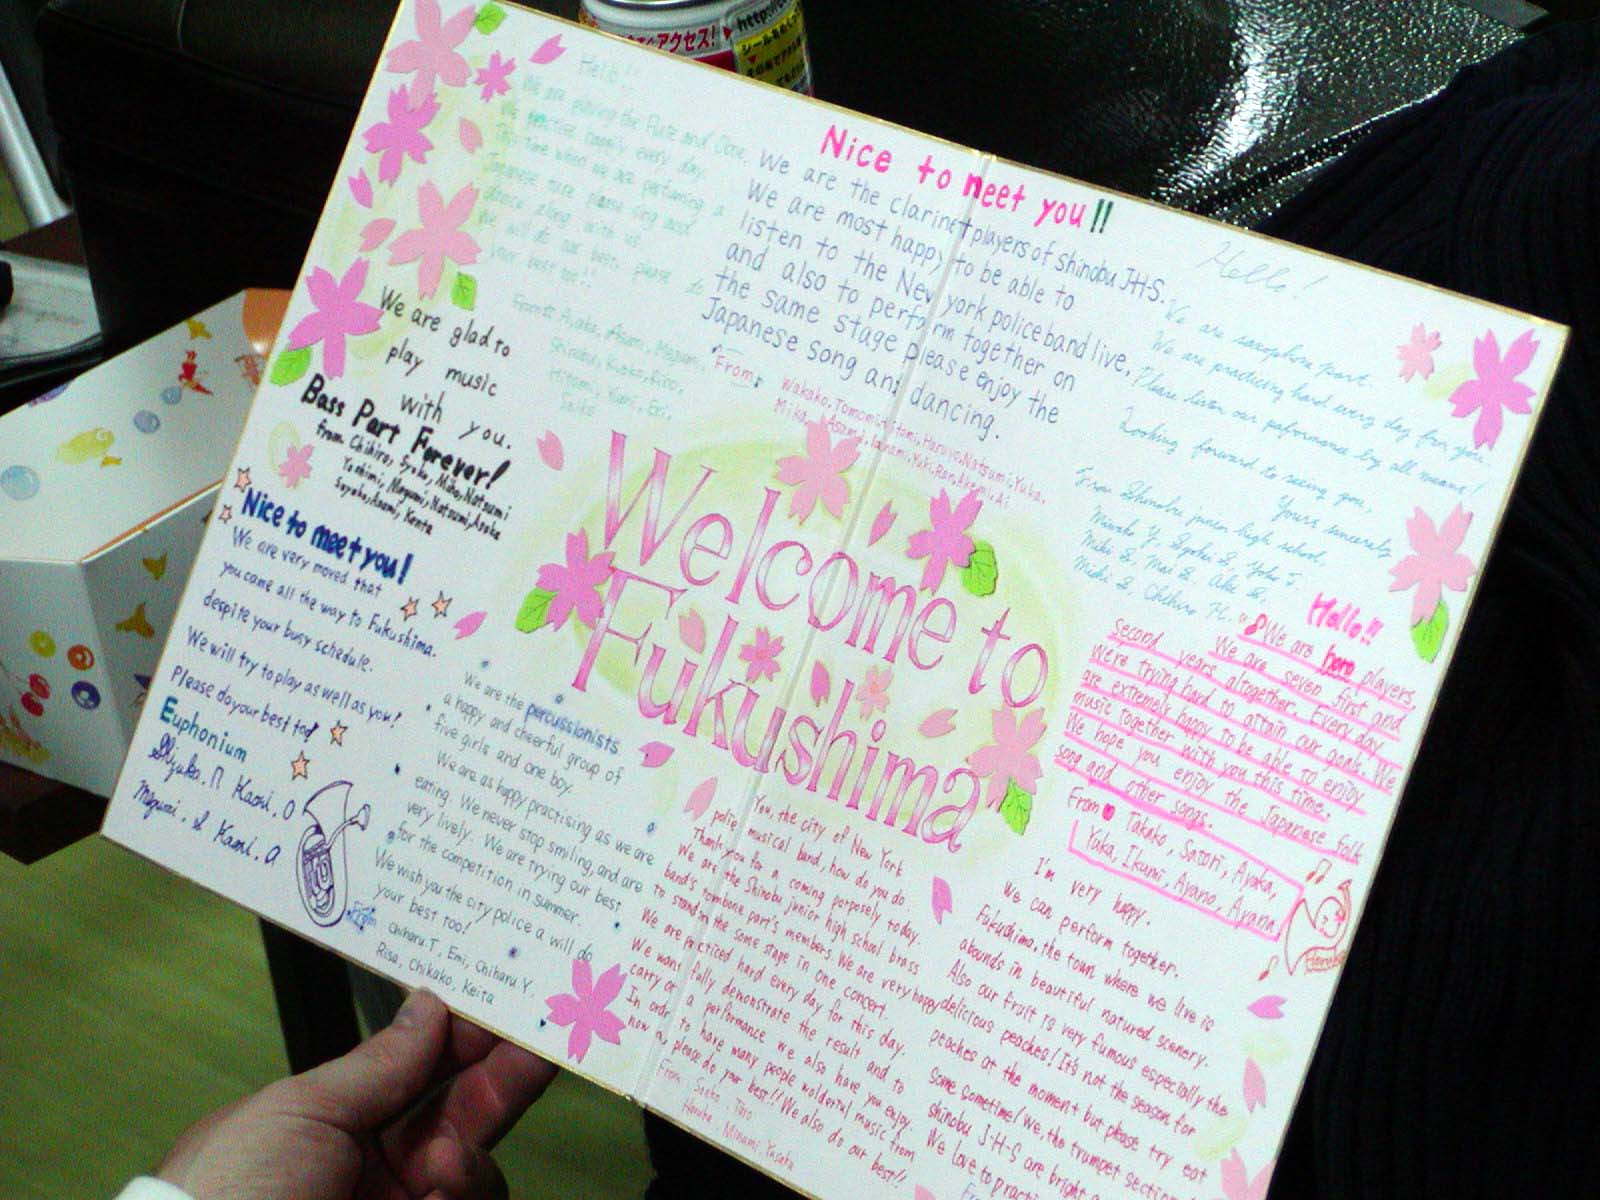 アクセス!
http://
Hello!!
We are playing the Flute and Oboe.
We practice happily every day.
This time when we are performing a
Japanese tune please sing and
dance along with us.
We will do our best, please do
your best too!!
From: Ayaka, Asami, Megumi,
Shinobu, Kyoko, Riho,
Hitomi, Yumi, Eri,
Saiko
Nice to meet you!!
We are the clarinet players of Shinobu J.H.S.
We are most happy to be able to
listen to the New york police band live,
and also to perform together on
the same stage please enjoy the
Japanese song and dancing.
From:
Wakako, Tomomi, Hitomi, Haruyo, Natsumi, Yuka,
Mika, Asami, Yuki, Akemi, Ai
Hello!
We are saxophone part.
We are practicing hard every day for you.
Please listen our paformance by all means!
Looking forward to seeing you,
Yours sincerely
From Shinobu junior high school,
We are glad to
play music
with you.
Bass Part Forever!
from Chihiro, Syoko, Miho, Natsumi
Yoshimi, Mayumi, Natsumi, Asuka
Sayaka, Anami, Kenta
Nice to meet you!
We are very moved that
you came all the way to Fukushima.
despite your busy schedule.
We will try to play as well as you!
Please do your best too!
Euphonium
Kaori. O
Megumi. S Kaori. O
Welcome to
Fukushima
We are the percussionists
a happy and cheerful group of
five girls and one boy.
We are as happy practising as we are
eating. We never stop smiling, and are
very lively. We are trying our best
for the competition in summer.
We wish you the city police a will do
your best too!
From Chiharu. T, Emi, Chiharu Y.
Risa, Chikako, Keita
You, the city of New York
polie musical band, how do you do
Thank you for a coming porposely today.
We are the Shinobu junior high school brass
band's tombone part's members. We are very happy
to stand in the some stage in one concert.
We are practiced hard every day for this day.
We want fully demonstrate the result and to
carry or a performance we also have you enjoy.
In order to have many people wolderful music from
now on, please do your best!! We also do our best!!
From: Saeko, Tiho
Haruka, Minami, Yasuta
Hello!!
We are horn players,
We are seven first and
second years altogether. Every day
we're trying hard to attain our goals. We
are extremely happy to be able to enjoy
music together with you this time.
We hope you enjoy the Japanese folk
song and other songs.
From Takako, Satori, Ayaka,
Yuka, Ikumi, Ayano, Ayana
I'm very happy.
We can perform together.
Fukushima, the town where we live is
abounds in beautiful natured scenery.
Also our fruit is very fumous especially the
delicious peaches! It's not the season for
peaches at the moment but please try eat
some sometime! We, the trumpet section
shinobu J-H-S are bright
We love to practi